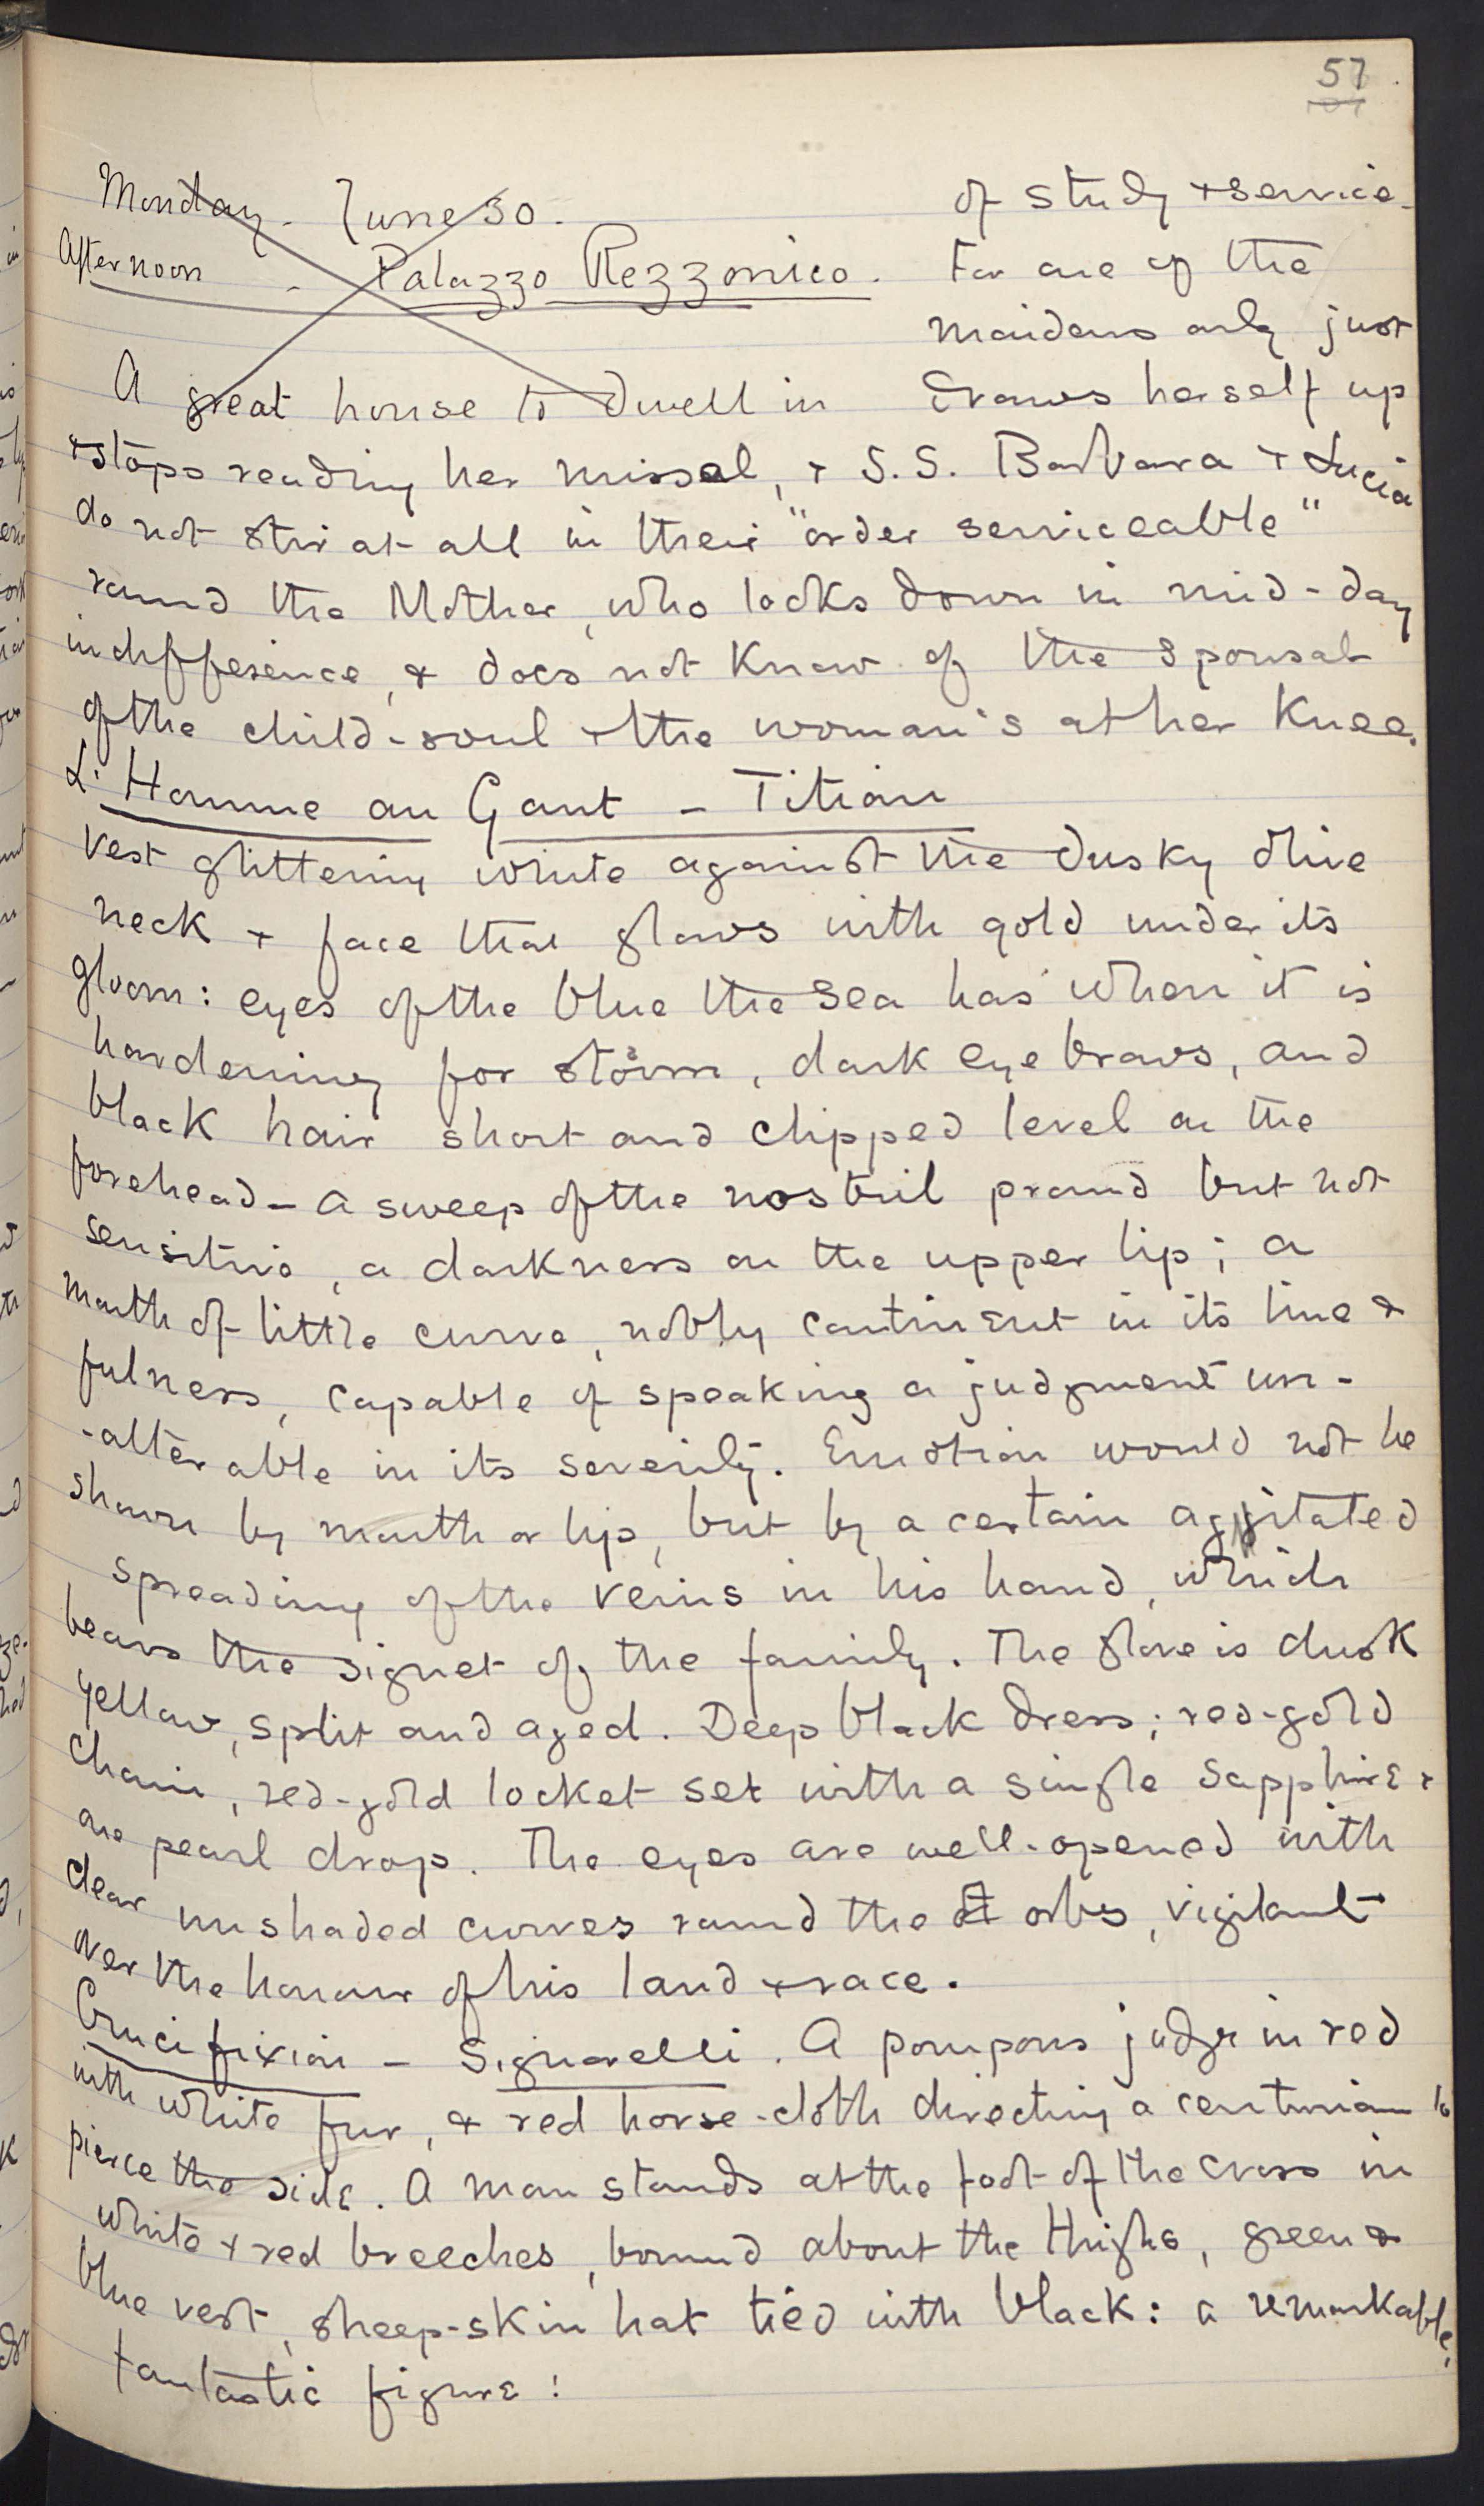 57
Monday - June 30.
Afternoon - Palazzo Rezzonico.
A great house to dwell in
of study + service.
For one of the
maidens only just
draws herself up
+ stops reading her missal, + S.S. Barbara + Lucia
do not stir at all in their "order serviceable"
round the Mother, who looks down in mid-day
indifference, & does not know of the spousal
of the child-soul + the woman's at her knee.
L'Homme au Gant - Titian
Vest glittering white against the dusky olive
neck + face that glows with gold under its
gloom: eyes of the blue the sea has when it is
hardening for storm, dark eyebrows, and
black hair short and clipped level on the
forehead - a sweep of the nostril proud but not
sensitive, a darkness on the upper lip; a
mouth of little curve, nobly continent in its line &
fulness, capable of speaking a judgment un-
-alterable in its severity. Emotion would not be
shown by mouth or lip, but by a certain agitated
spreading of the veins in his hand, which
bears the signet of the family. The glove is dusk
yellow, split and aged. Deep black dress; red-gold
chain, red-gold locket set with a single sapphire +
one pearl drop. The eyes are well-opened with
clear unshaded curves round the orbs, vigilant
over the honour of his land + race.
Crucifixion - Signorelli. A pompous judge in red
with white fur, & red horse-cloth directing a centurian to
pierce the side. A man stands at the foot of the cross in
white + red breeches, bound about the thighs, green &
blue vest, sheep-skin hat tied with black: a remarkable,
fantastic figure!